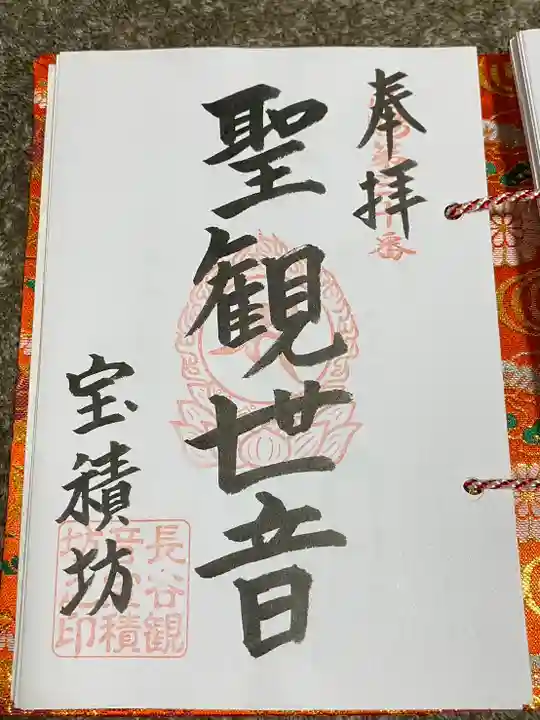 奉拝
十番
聖観世音
宝積坊
長谷観
音宝積
坊之印